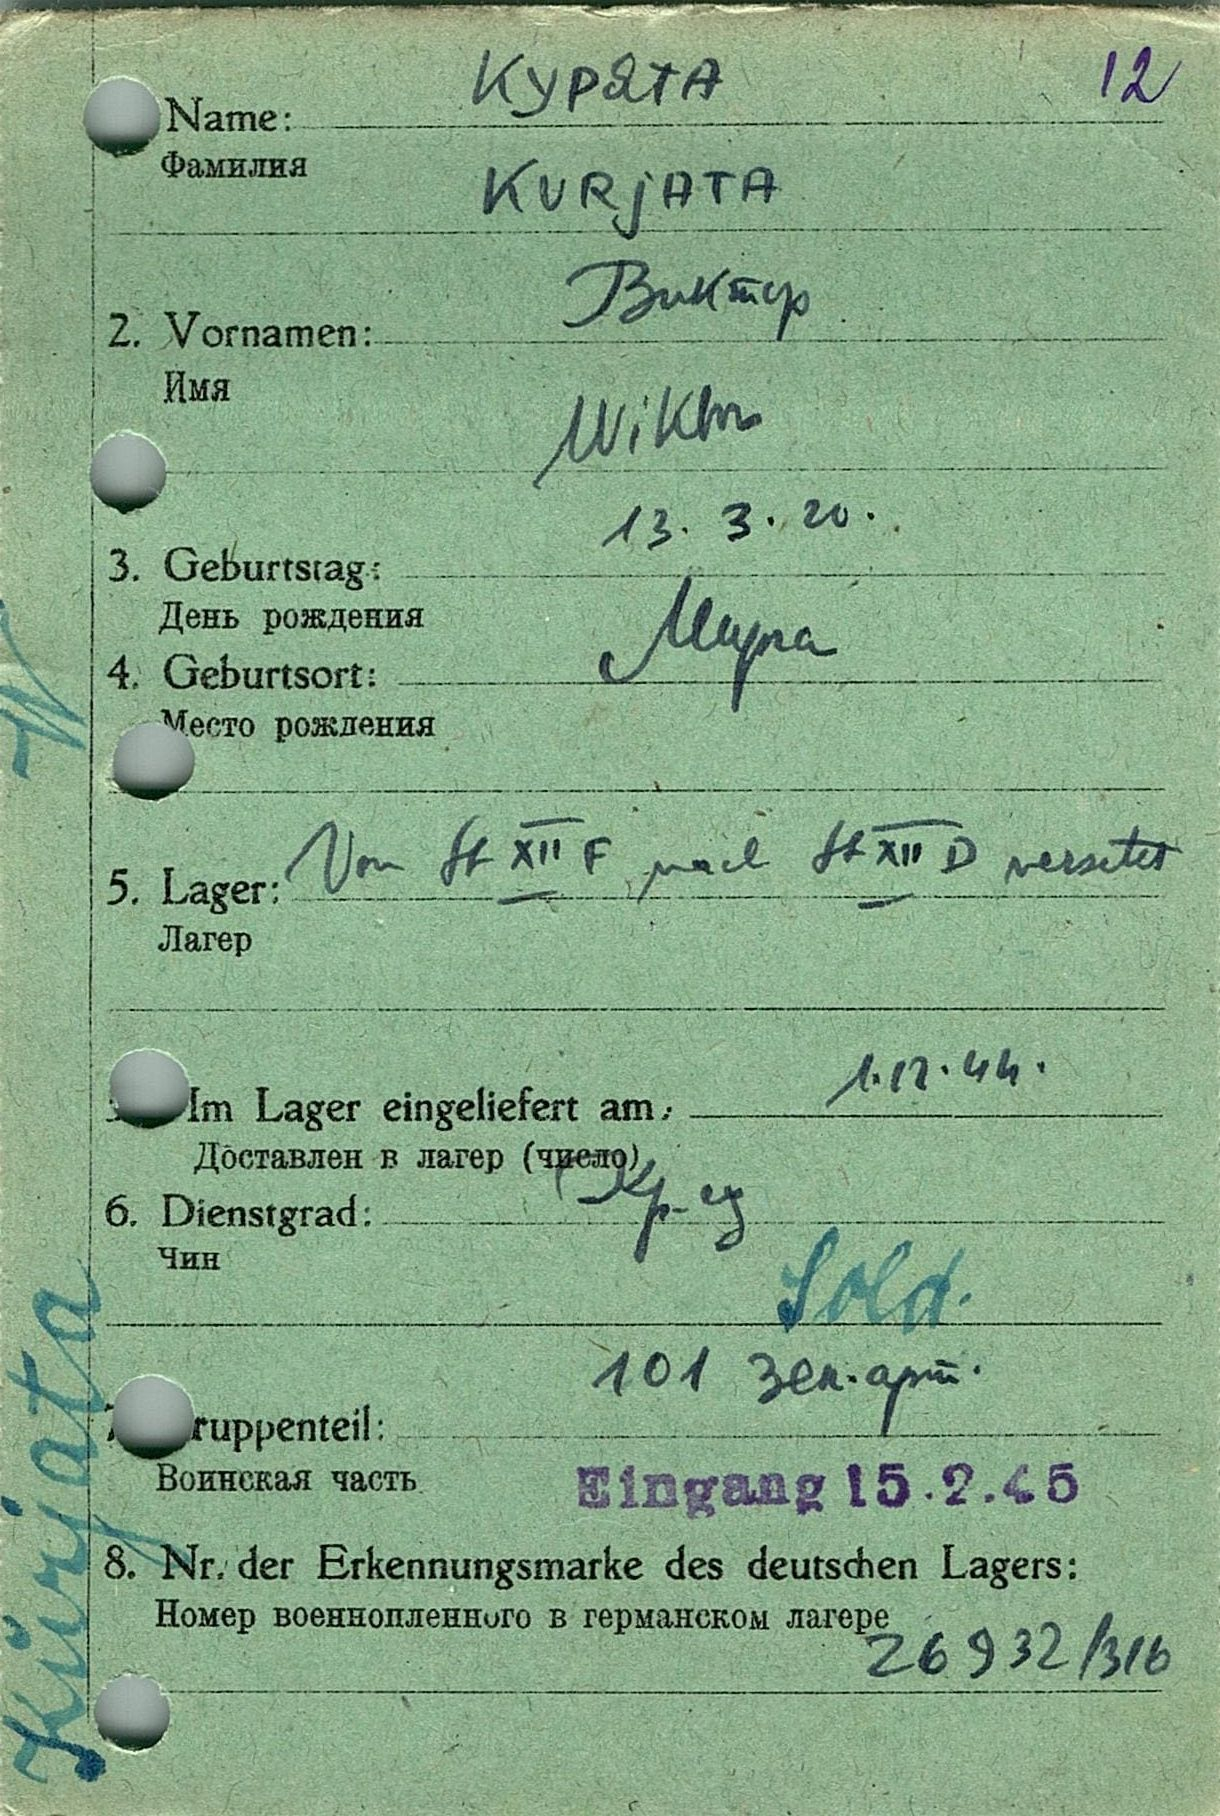 12
КУРЯТА
Name:
Фамилия
KURjATA
Виктор
2. Vornamen:
Имя
Wiktor
13. 3. 20.
3. Geburtstag:
День рождения
4. Geburtsort:
Место рождения
Von St XII F nach St XII D versetzt
5. Lager:
Лагер
1.12.44.
Im Lager eingeliefert am:
Доставлен в лагер (число)
Кр-ец
6. Dienstgrad:
Чин
Sold.
101 зен. арт.
ruppenteil:
Воинская часть
Eingang 15.2.45
8. Nr. der Erkennungsmarke des deutschen Lagers:
Номер военнопленного в германском лагере
26932/316
Kurjata W